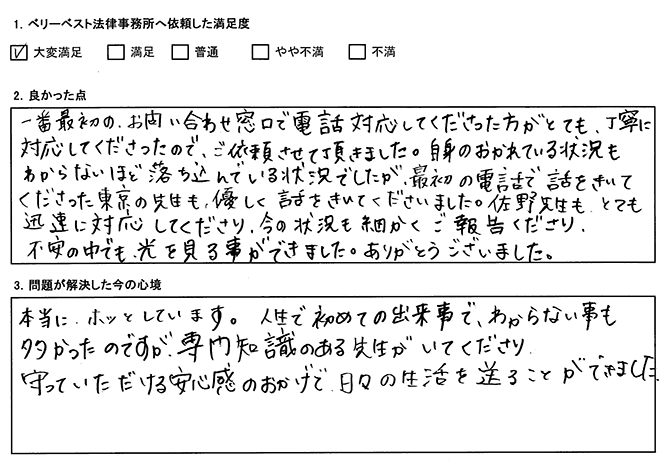 1. ベリーベスト法律事務所へ依頼した満足度
☑ 大変満足 □ 満足 □ 普通 □ やや不満 □ 不満
2. 良かった点
一番最初の、お問い合わせ窓口で電話対応してくださった方がとても、丁寧に
対応してくださったので、ご依頼させて頂きました。自身のおかれている状況も
わからないほど落ち込んでいる状況でしたが、最初の電話で話をきいて
くださった東京の先生も、優しく話をきいてくださいました。佐野先生も、とても
迅速に対応してくださり、今の状況も細かくご報告くださり、
不安の中でも、光を見る事ができました。ありがとうございました。
3. 問題が解決した今の心境
本当に、ホッとしています。人生で初めての出来事で、わからない事も
多かったのですが、専門知識のある先生がいてくださり、
守っていただける安心感のおかげで、日々の生活を送ることができました